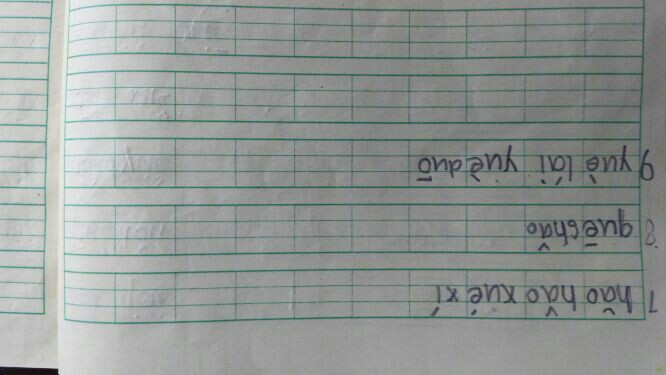 7 hǎo hǎo xué xí
8. quēshǎo
9 yuè lái yuèduō